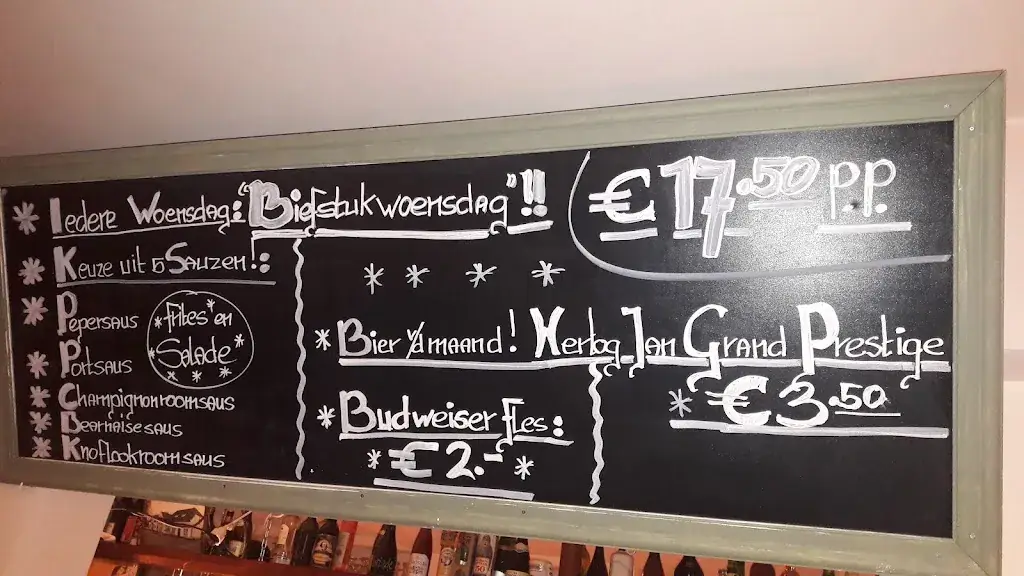 * Iedere Woensdag: "Biefstukwoensdag"!! €17.50 p.p.
* Keuze uit 5 Sauzen!:
* Pepersaus
* Portsaus
* Champignonroomsaus
* Bearnaisesaus
* Knoflookroomsaus
* Frites en *
* Salade *
* * *
* * * *
* Bier v/d maand! Hertog Jan Grand Prestige
* € 3.50
* Budweiser fles:
* € 2.- *